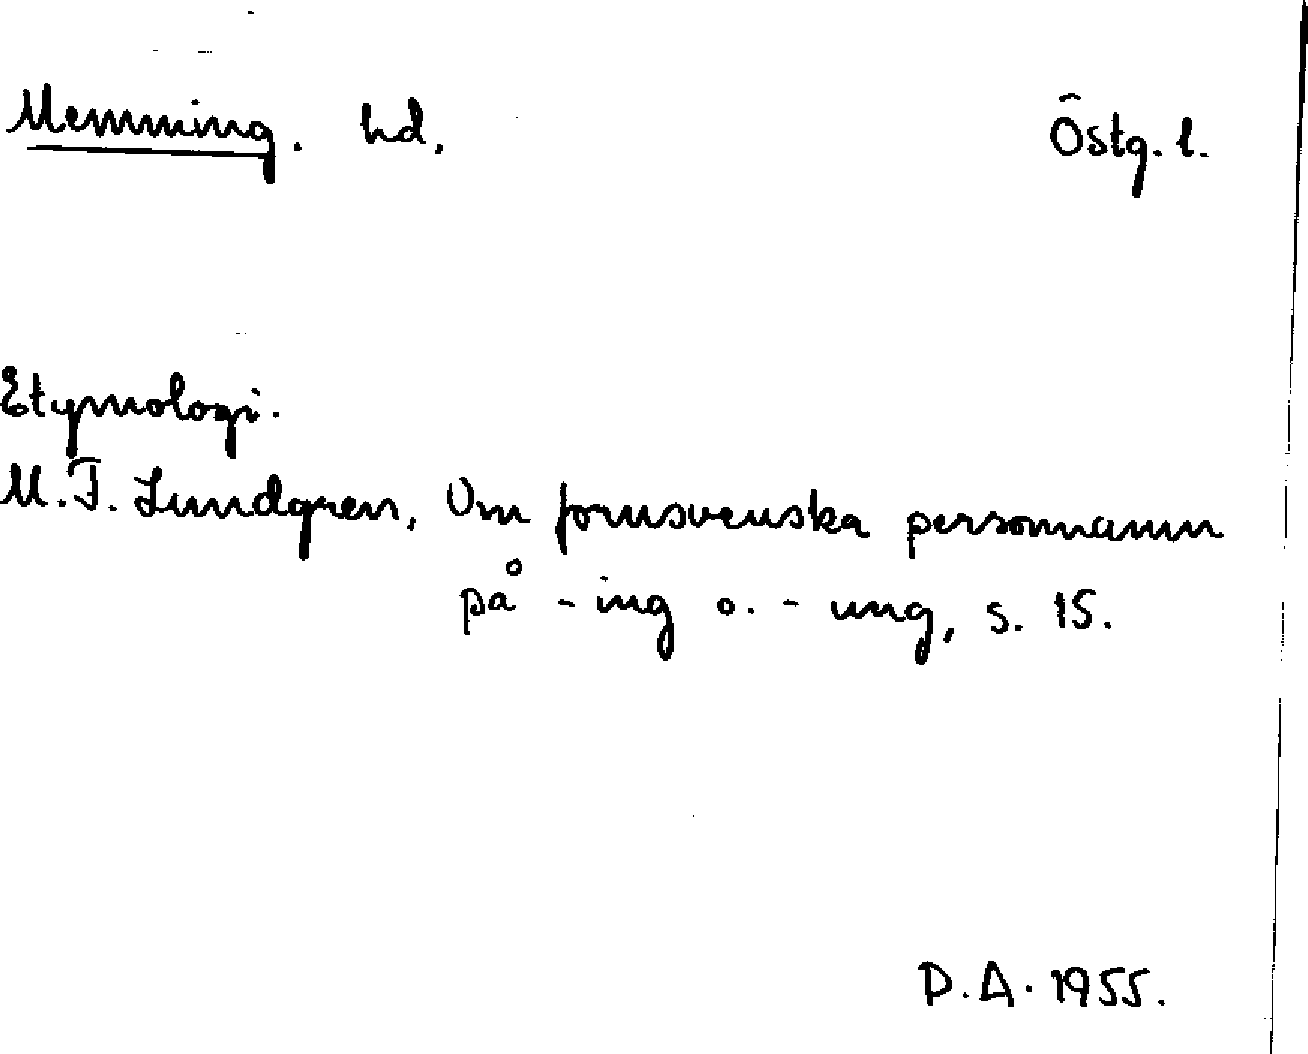 Memming. hd. Östg. l.
Etymologi.
M. F. Lundgren, Om fornsvenska personnamn
på -ing o. -ung, s. 15.
D.A. 1955.